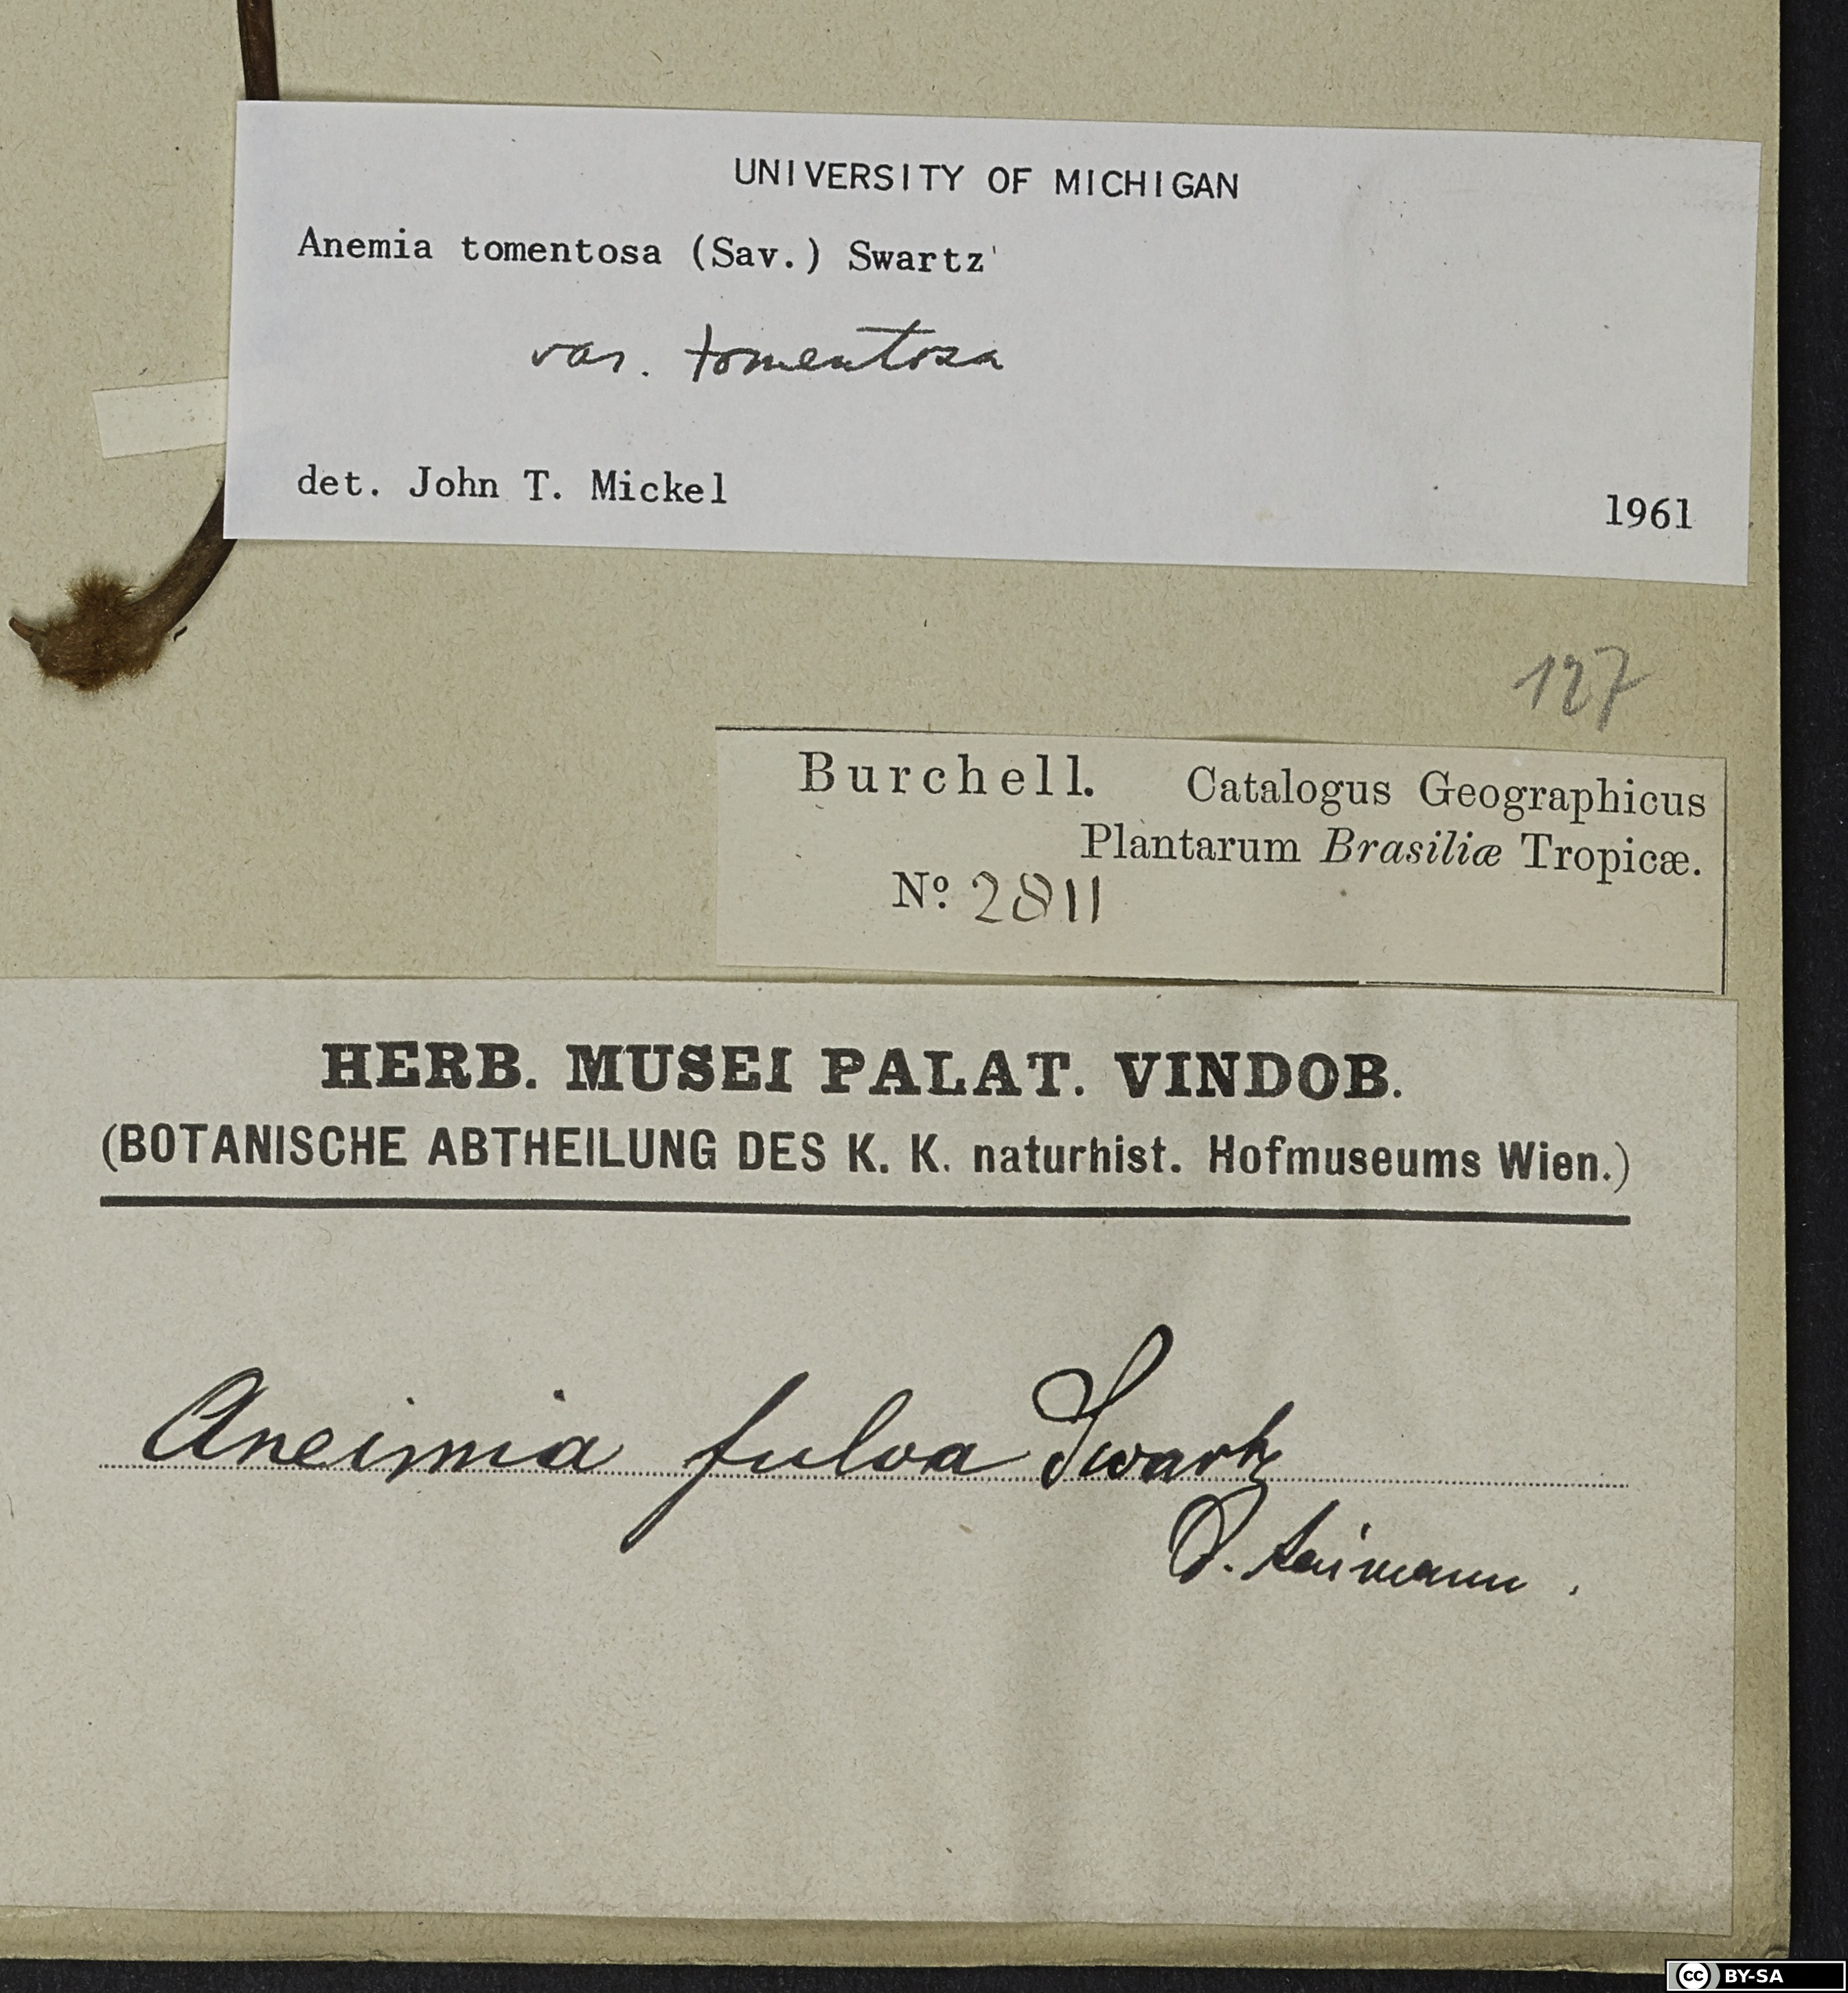 UNIVERSITY OF MICHIGAN
Anemia tomentosa (Sav.) Swartz
var. tomentosa
det. John T. Mickel 1961
127
Burchell. Catalogus Geographicus
Plantarum Brasiliæ Tropicæ.
Nº. 2811
HERB. MUSEI PALAT. VINDOB.
(BOTANISCHE ABTHEILUNG DES K. K. naturhist. Hofmuseums Wien.)
Aneimia fulva Swartz
cc BY-SA